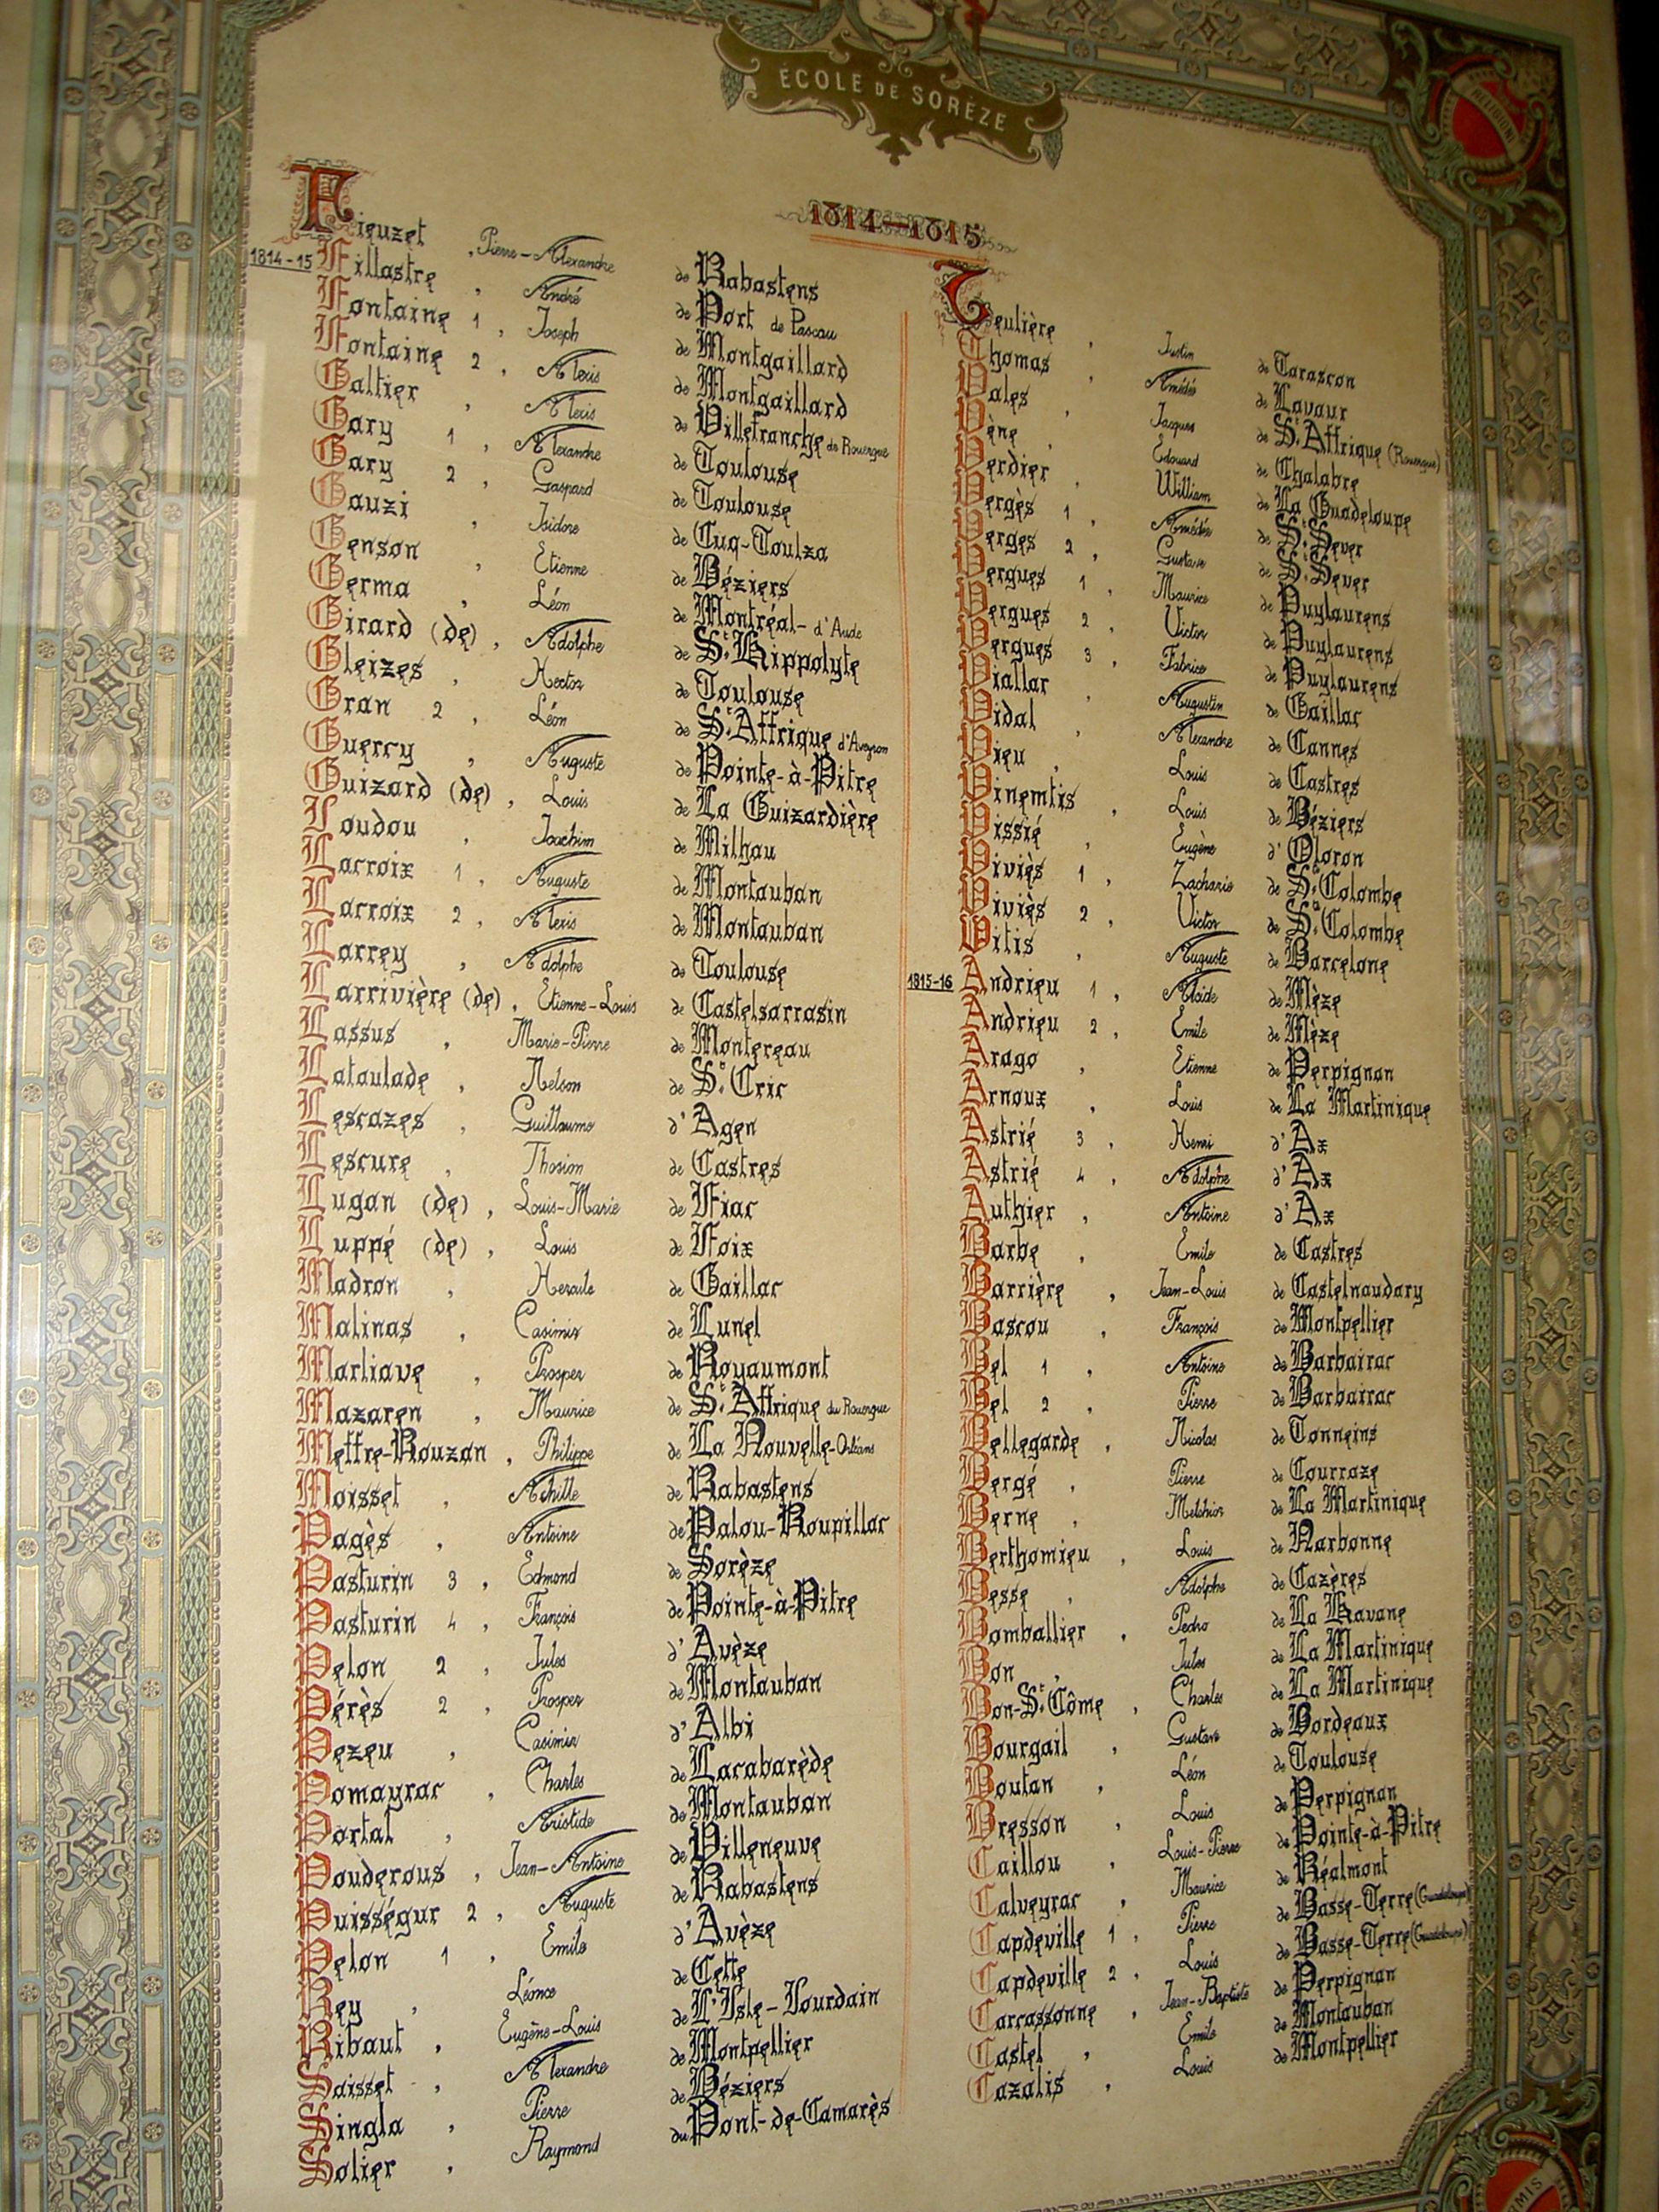 ÉCOLE DE SORÈZE
RELIGIONI
1814-1815
1814-15
Fieuzet, Pierre-Alexandre de Rabastens
Fillastre, André de Port de Pascau
Fontaine 1, Joseph de Montgaillard
Fontaine 2, Alexis de Montgaillard
Galtier, Alexis de Villefranche de Rouergue
Gary 1, Alexandre de Toulouse
Gary 2, Gaspard de Toulouse
Gauzi, Isidore de Cuq-Toulza
Genson, Etienne de Béziers
Germa, Léon de Montréal-d'Aude
Girard (de), Adolphe de St Hippolyte
Gleizes, Hector de Toulouse
Gran 2, Léon de St Affrique d'Aveyron
Guercy, Auguste de Pointe-à-Pitre
Guizard (de), Louis de La Guizardière
Joudou, Joachim de Milhau
Lacroix 1, Auguste de Montauban
Lacroix 2, Alexis de Montauban
Larrey, Adolphe de Toulouse
Larrivière (de), Etienne-Louis de Castelsarrasin
Lassus, Marie-Pierre de Montereau
Lataulade, Nelson de St Cric
Lescazes, Guillaume d'Agen
Lescure, Thosion de Castres
Lugan (de), Louis-Marie de Fiac
Luppé (de), Louis de Foix
Madron, Hercule de Gaillac
Malinas, Casimir de Lunel
Marliave, Prosper de Royaumont
Mazaren, Maurice de St Affrique du Rouergue
Meffre-Rouzan, Philippe de La Nouvelle-Orléans
Moisset, Achille de Rabastens
Pagès, Antoine de Palou-Roupillac
Pasturin 3, Edmond de Sorèze
Pasturin 4, François de Pointe-à-Pitre
Pelon 2, Jules d'Avèze
Pérès 2, Prosper de Montauban
Pezeu, Casimir d'Albi
Pomayrac, Charles de Lacabarède
Portal, Aristide de Montauban
Pouderous, Jean-Antoine de Villeneuve
Puisségur 2, Auguste de Rabastens
Pelon 1, Emile d'Avèze
Rey, Léonce de Cette
Ribaut, Eugène-Louis de L'Isle-Jourdain
Saisset, Alexandre de Montpellier
Singla, Pierre de Béziers
Solier, Raymond du Pont-de-Camarès
Teulière, Justin de Tarascon
Thomas, Amédée de Lavaur
Vales, Jacques de St Affrique (Rouergue)
Vène, Edouard de Chalabre
Verdier, William de La Guadeloupe
Vergès 1, Amédée de St Sever
Verges 2, Gustave de St Sever
Vergues 1, Maurice de Puylaurens
Vergues 2, Victor de Puylaurens
Vergues 3, Fabrice de Puylaurens
Viallar, Augustin de Gaillac
Vidal, Alexandre de Cannes
Vieu, Louis de Castres
Vinemtis, Louis de Béziers
Vissié, Eugène d'Oloron
Viviès 1, Zacharie de Ste Colombe
Viviès 2, Victor de Ste Colombe
Vitis, Auguste de Barcelone
1815-16
Andrieu 1, Alcide de Mèze
Andrieu 2, Emile de Mèze
Arago, Etienne de Perpignan
Arnoux, Louis de La Martinique
Astrié 3, Henri d'Ax
Astrié 4, Adolphe d'Ax
Authier, Antoine d'Ax
Barbe, Emile de Castres
Barrière, Jean-Louis de Castelnaudary
Bascou, François de Montpellier
Bel 1, Antoine de Barbairac
Bel 2, Pierre de Barbairac
Bellegarde, Nicolas de Tonneins
Bergé, Pierre de Courraze
Berne, Melchior de La Martinique
Berthomieu, Louis de Narbonne
Besse, Adolphe de Cazères
Bomballier, Pedro de La Havane
Bon, Jules de La Martinique
Bon-St Côme, Charles de La Martinique
Bourgail, Gustave de Bordeaux
Boutan, Léon de Toulouse
Bresson, Louis de Perpignan
Caillou, Louis-Pierre de Pointe-à-Pitre
Calveyrac, Maurice de Réalmont
Capdeville 1, Pierre de Basse-Terre (Guadeloupe)
Capdeville 2, Louis de Basse-Terre (Guadeloupe)
Carcassonne, Jean-Baptiste de Perpignan
Castel, Emile de Montauban
Cazalis, Louis de Montpellier